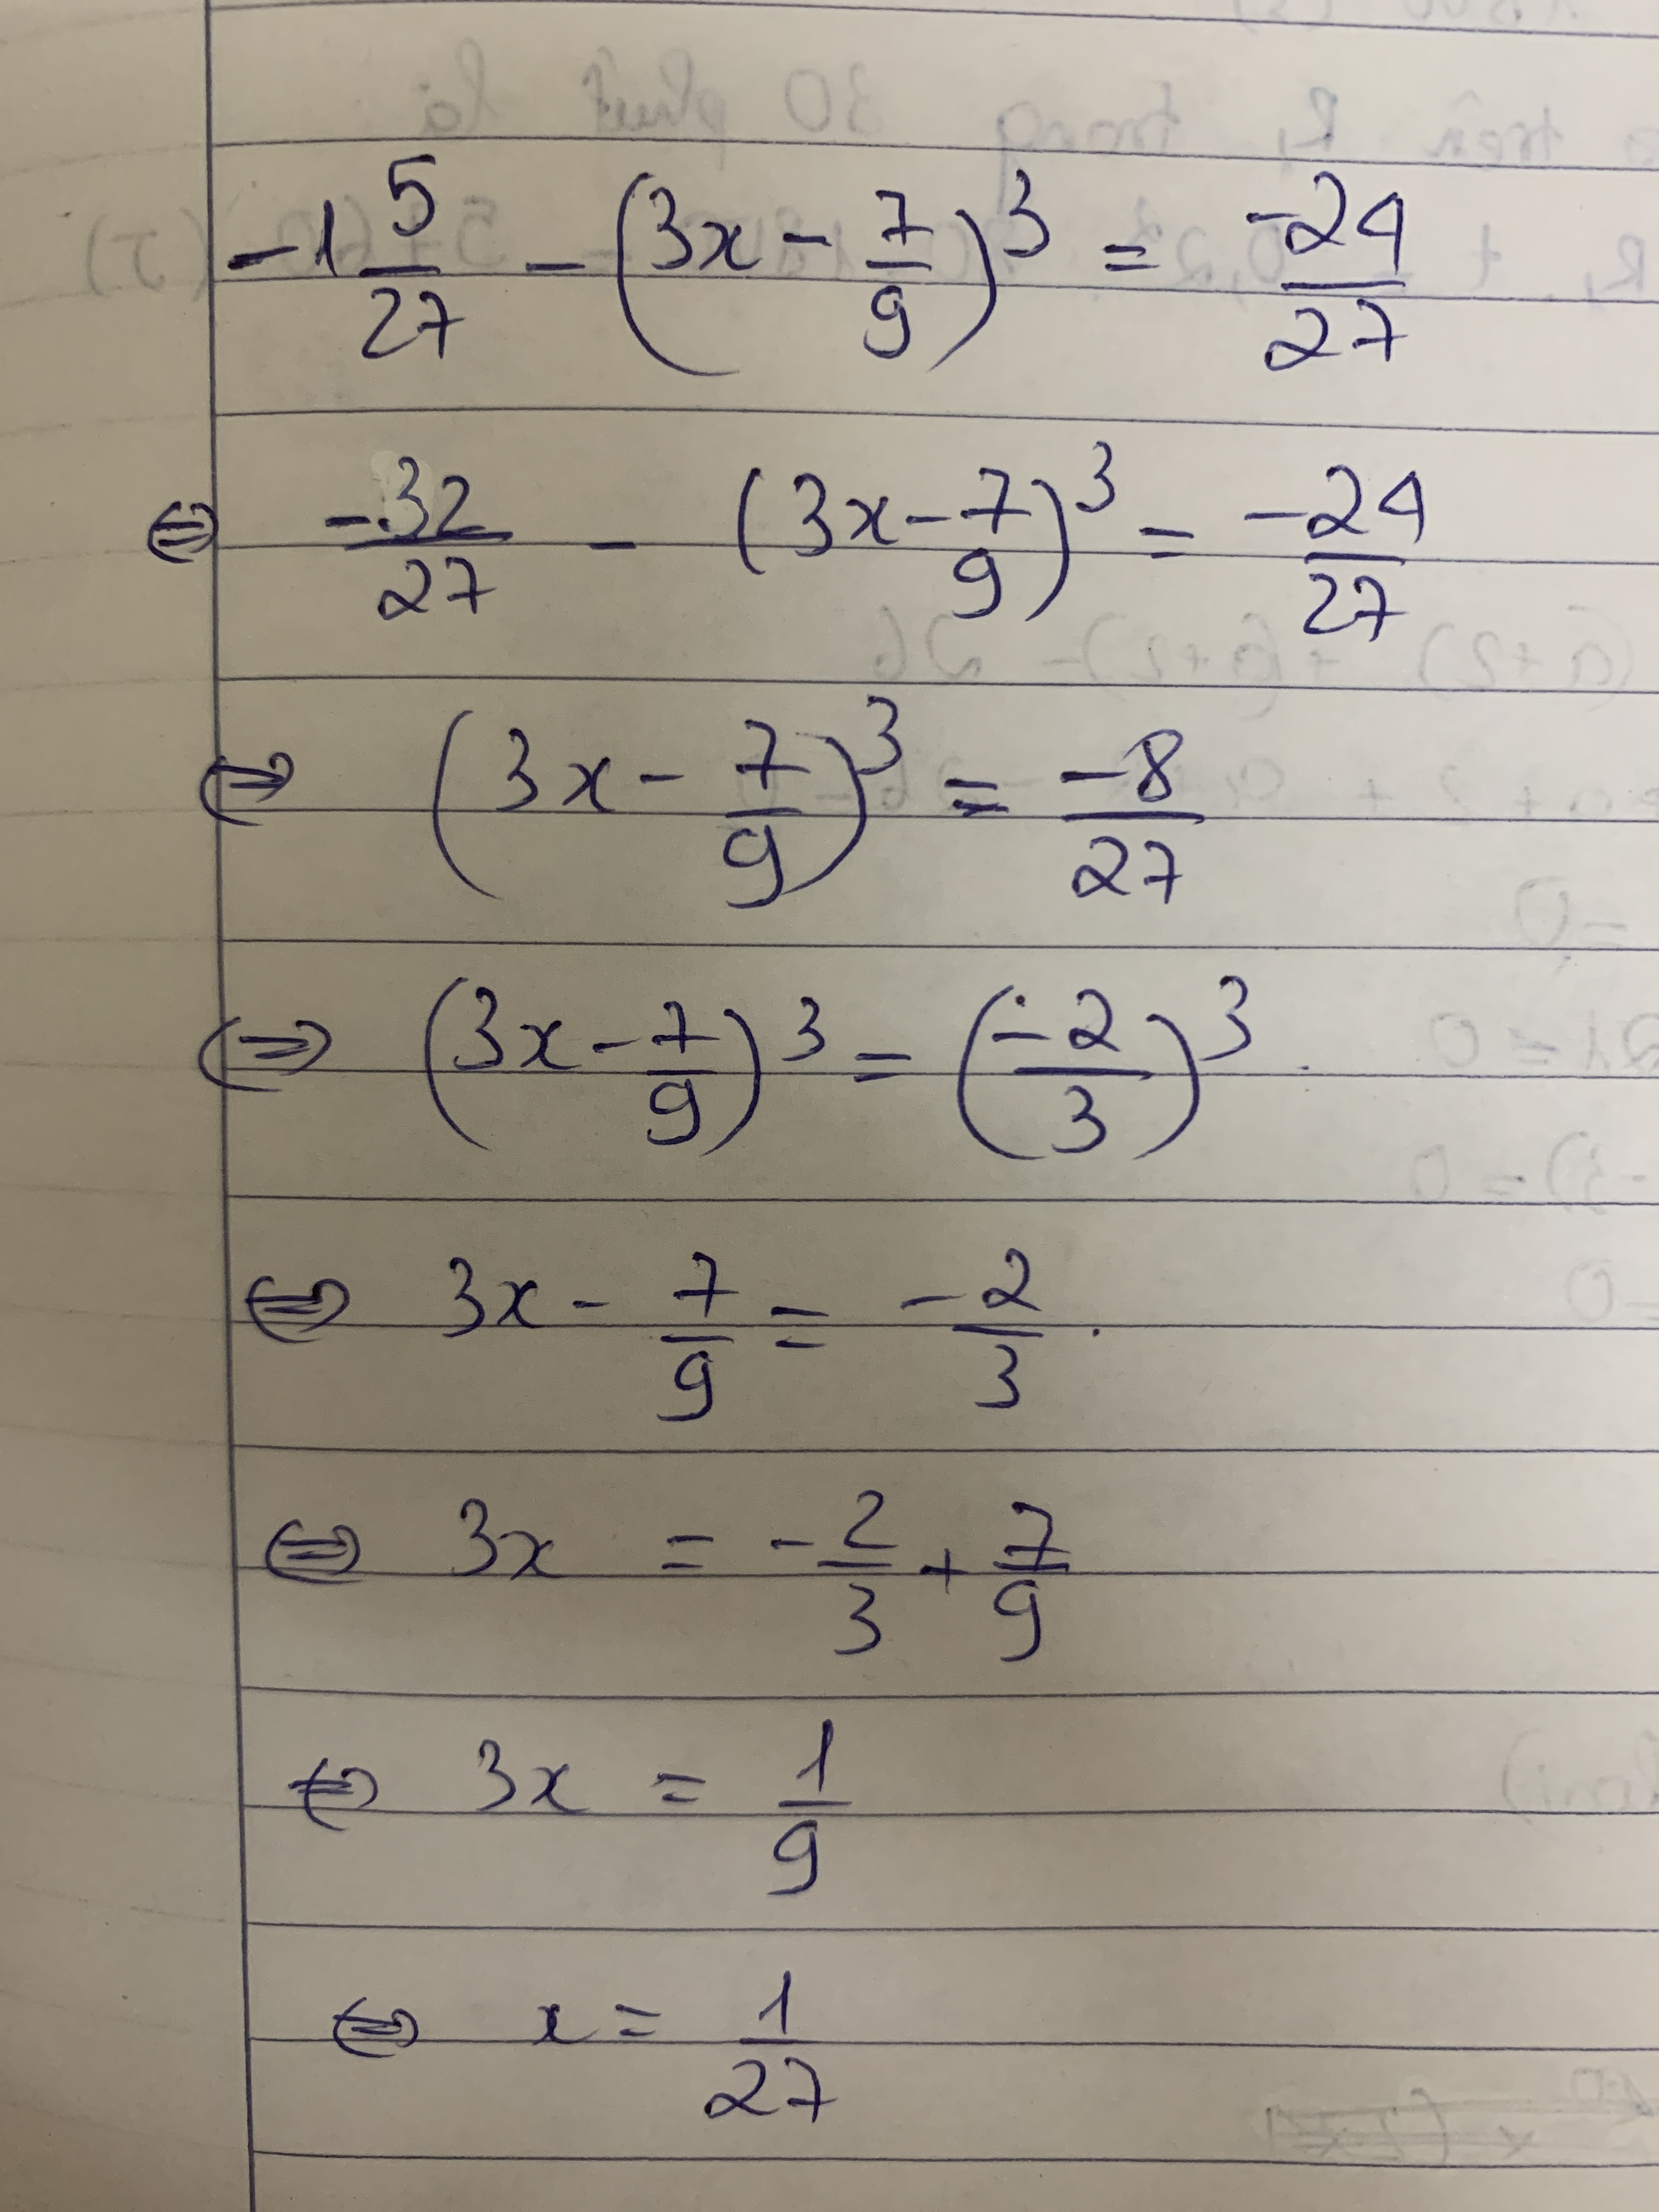 -1 5/27 - (3x - 7/9)^3 = -24/27
⇔ -32/27 - (3x - 7/9)^3 = -24/27
⇔ (3x - 7/9)^3 = -8/27
⇔ (3x - 7/9)^3 = (-2/3)^3.
⇔ 3x - 7/9 = -2/3.
⇔ 3x = -2/3 + 7/9
⇔ 3x = 1/9
⇔ x = 1/27